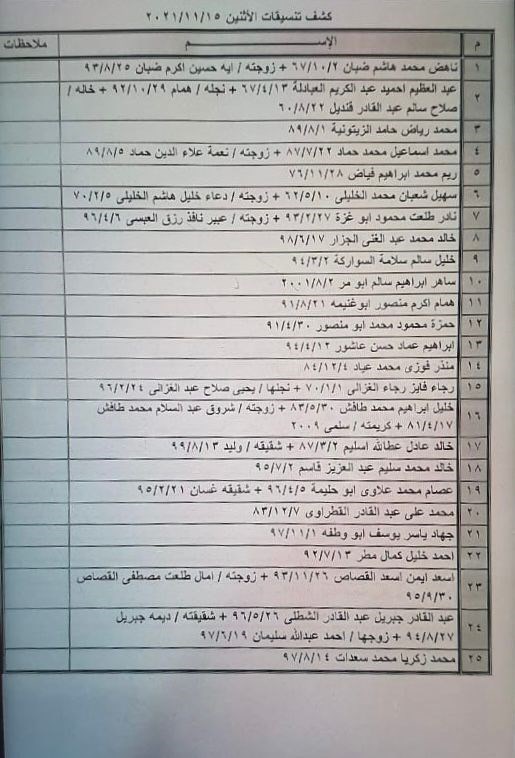 كشف تنسيقات الأثنين ٢٠٢١/١١/١٥
م الإســـــم ملاحظات
١ ناهض محمد هاشم ضبان ٦٧/١٠/٢ + زوجته / ايه حسين اكرم ضبان ٩٣/٨/٢٥
٢ عبد العظيم احميد عبد الكريم العبادلة ٦٧/٤/١٣ + نجله / همام ٩٢/١٠/٢٩ + خاله /
صلاح سالم عبد القادر قنديل ٦٠/٨/٢٢
٣ محمد رياض حامد الزيتونية ٨٩/٨/١
٤ محمد اسماعيل محمد حماد ٨٧/٧/٢٢ + زوجته / نعمة علاء الدين حماد ٨٩/٨/٥
٥ ريم محمد ابراهيم فياض ٧٦/١١/٢٨
٦ سهيل شعبان محمد الخليلى ٦٢/٥/١٠ + زوجته / دعاء خليل هاشم الخليلى ٧٠/٢/٥
٧ نادر طلعت محمود ابو غزة ٩٣/٢/٢٧ + زوجته / عبير نافذ رزق العبسى ٩٦/٤/٦
٨ خالد محمد عبد الغنى الجزار ٩٨/٦/١٧
٩ خليل سالم سلامة السواركة ٩٤/٣/٢
١٠ ساهر ابراهيم سالم ابو مر ٢٠٠١/٨/٢
١١ همام اكرم منصور ابوغنيمه ٩١/٨/٢١
١٢ حمزة محمود محمد ابو منصور ٩١/٤/٣٠
١٣ ابراهيم عماد حسن عاشور ٩٤/٤/١٢
١٤ منذر فوزى محمد عياد ٨٤/١٢/٤
١٥ رجاء فايز رجاء الغزالى ٧٠/١/١ + نجلها / يحيى صلاح عبد الغزالى ٩٦/٢/٢٤
١٦ خليل ابراهيم محمد طافش ٨٣/٥/٣٠ + زوجته / شروق عبد السلام محمد طافش
٨١/٤/١٧ + كريمته / سلمى ٢٠٠٩
١٧ خالد عادل عطاالله اسليم ٨٧/٣/٢ + شقيقه / وليد ٩٩/٨/١٣
١٨ خالد محمد سليم عبد العزيز قاسم ٩٥/٧/٢
١٩ عصام محمد علاوى ابو حليمة ٩٦/٤/٥ + شقيقه غسان ٩٥/٢/٢١
٢٠ محمد على عبد القادر القطراوى ٨٣/١٢/٧
٢١ جهاد ياسر يوسف ابو وطفه ٩٧/١١/١
٢٢ احمد خليل كمال مطر ٩٢/٧/١٣
٢٣ اسعد ايمن اسعد القصاص ٩٣/١١/٢٦ + زوجته / امال طلعت مصطفى القصاص
٩٥/٩/٣٠
٢٤ عبد القادر جبريل عبد القادر الشطلى ٩٦/٥/٢٦ + شقيقته / ديمه جبريل
٩٤/٨/٢٧ + زوجها / احمد عبدالله سليمان ٩٧/٦/١٩
٢٥ محمد زكريا محمد سعدات ٩٧/٨/١٤